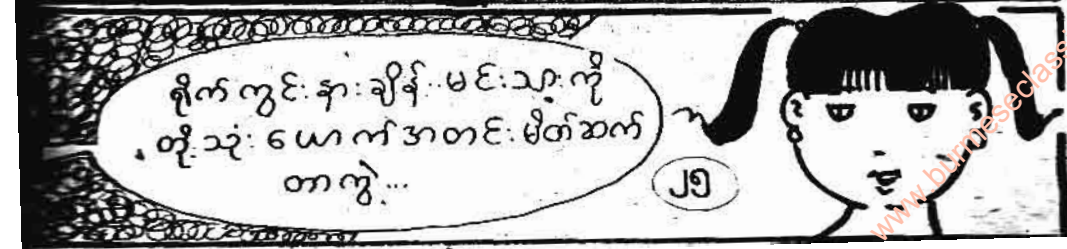 ရိုက်ကွင်းနားချိန်..မင်းသားကို
တို့သုံးယောက်အတင်းမိတ်ဆက်
တာကွဲ့...
၂၅
www.burmeseclass